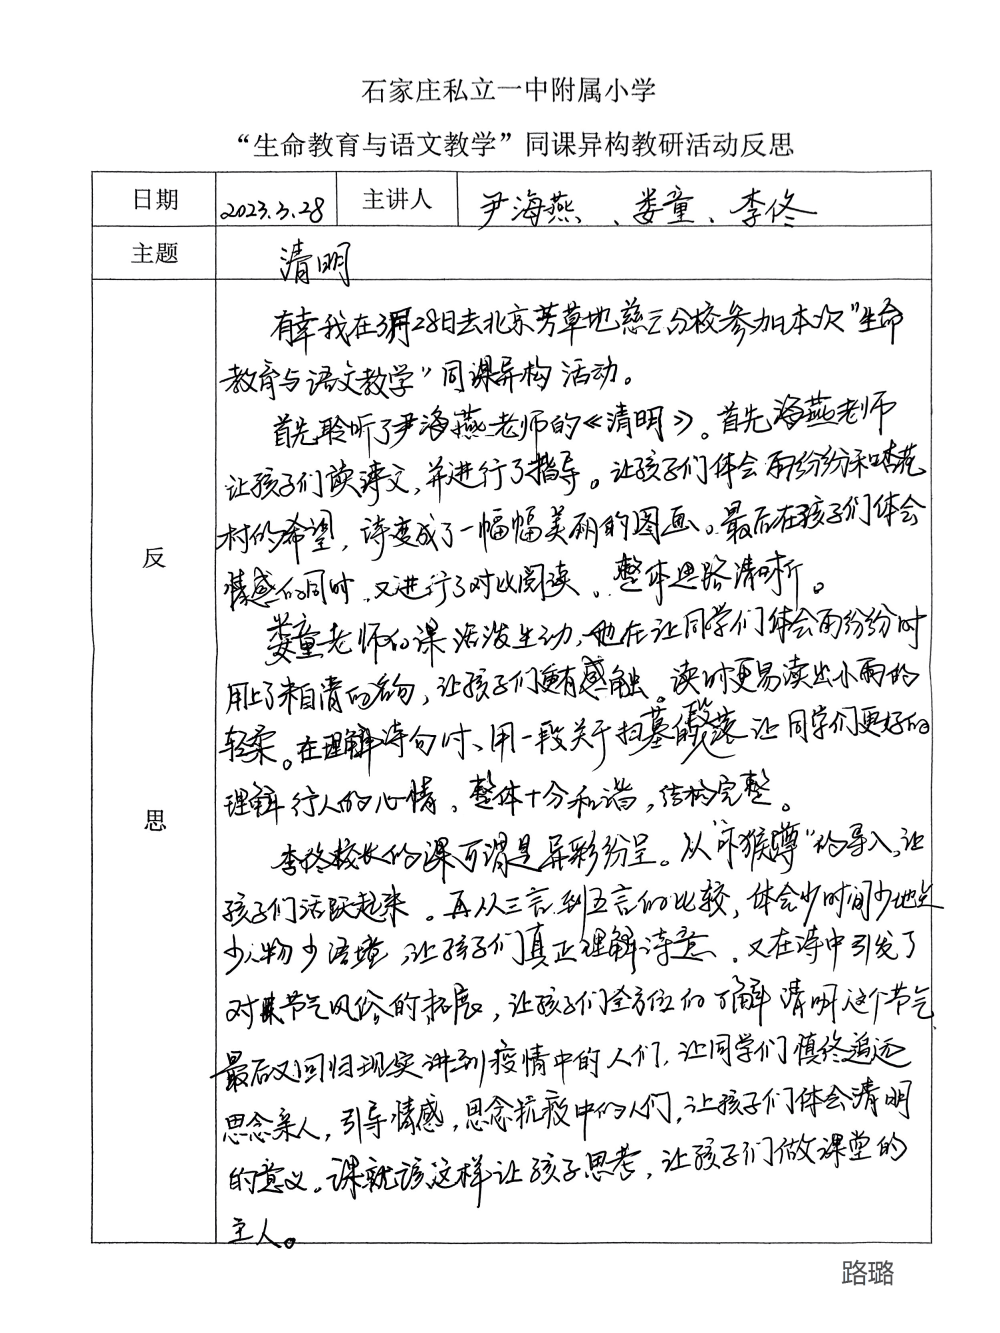 石家庄私立一中附属小学
“生命教育与语文教学”同课异构教研活动反思
日期 2023.3.28 主讲人 尹海燕、娄童、李佟
主题 清明
反思
有幸我在3月28日去北京芳草地慈云分校参加本次“生命
教育与语文教学”同课异构活动。
首先聆听了尹海燕老师的《清明》。首先海燕老师
让孩子们读课文,并进行了指导。让孩子们体会雨纷纷和杏花
村的希望,诗变成了一幅幅美丽的图画。最后在孩子们体会
情感的同时,又进行了对比阅读。整体思路清晰。
娄童老师的课活泼生动,他在让同学们体会雨纷纷时
用上了朱自清的名句,让孩子们更有感触。读时更易读出小雨的
轻柔。在理解诗句时、用一段关于扫墓的段落让同学们更好的
理解行人的心情,整体十分和谐,结构完整。
李佟校长的课可谓是异彩纷呈。从“沐猴蹲”的导入,让
孩子们活跃起来。再从三言到五言的比较,体会少时间少地点
少人物少语境,让孩子们真正理解诗意。又在诗中引发了
对节气风俗的拓展,让孩子们全方位的了解清明这个节气
最后又回归现实讲到疫情中的人们,让同学们慎终追远
思念亲人,引导情感,思念抗疫中的人们,让孩子们体会清明
的意义。课就该这样让孩子思考,让孩子们做课堂的
主人。
路璐